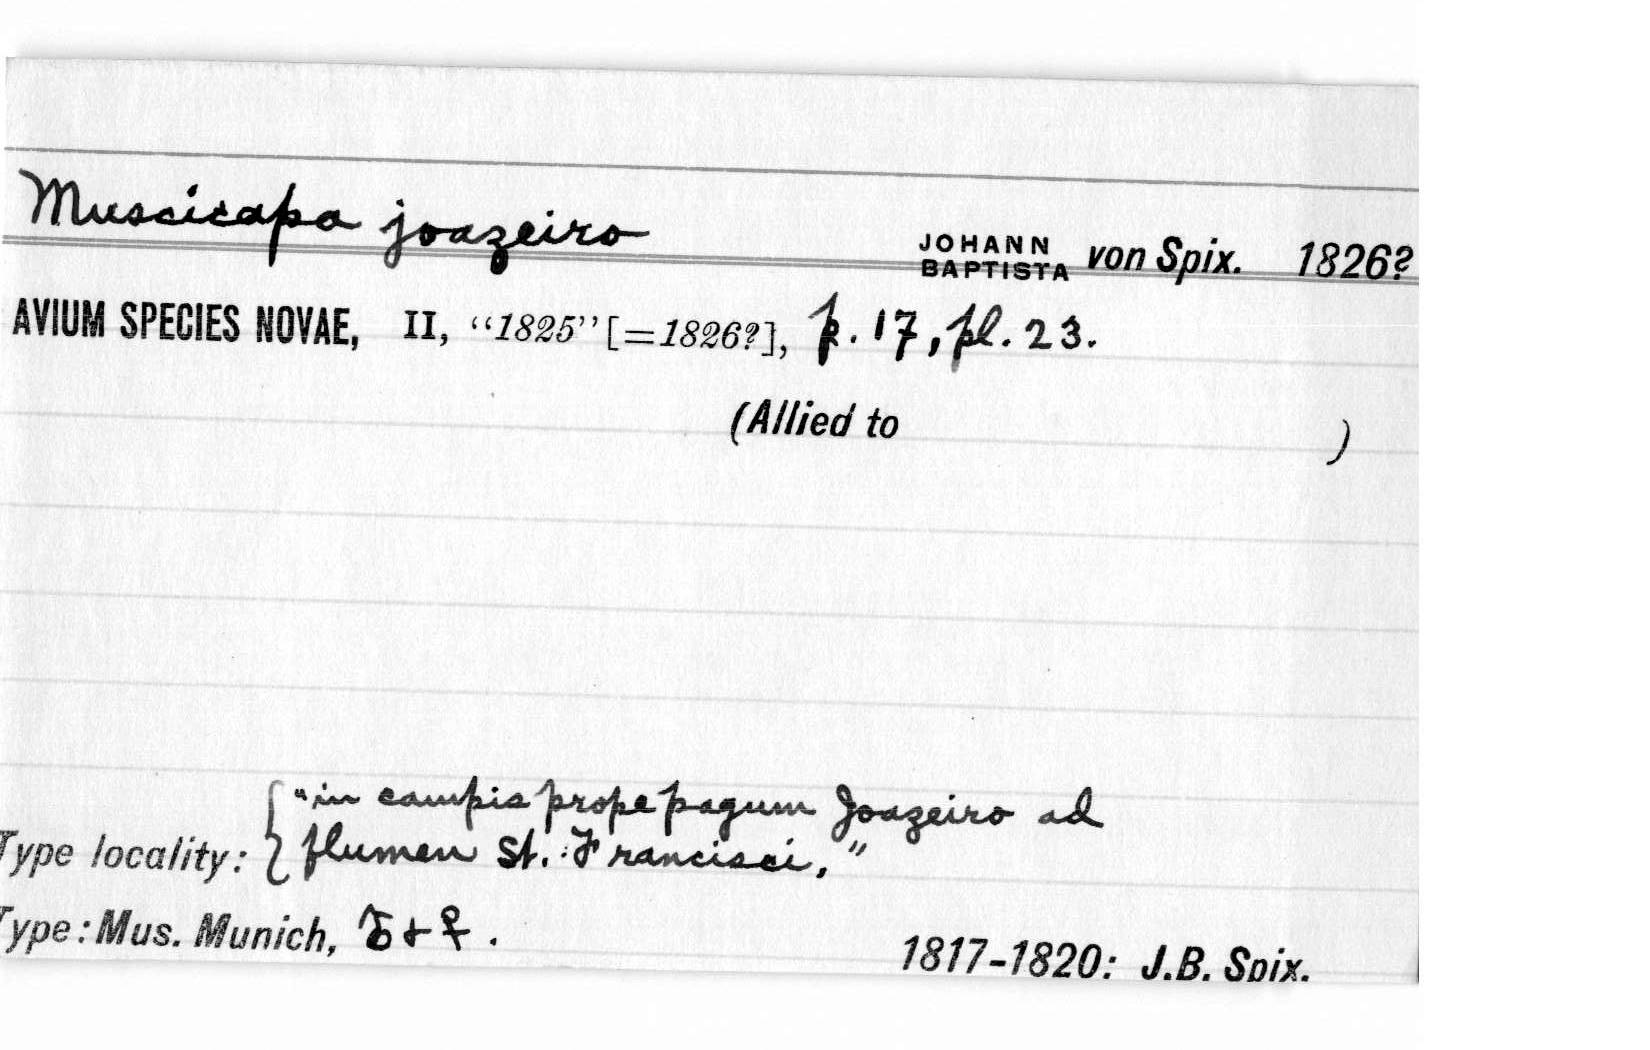 Muscicapa joazeiro
JOHANN BAPTISTA von Spix. 1826?
AVIUM SPECIES NOVAE, II, “1825” [=1826?], p. 17, pl. 23.
(Allied to )
"in campis prope pagum Joazeiro ad
Type locality: { flumen St. Francisci,"
Type: Mus. Munich, ♂ + ♀.
1817-1820: J.B. Spix.